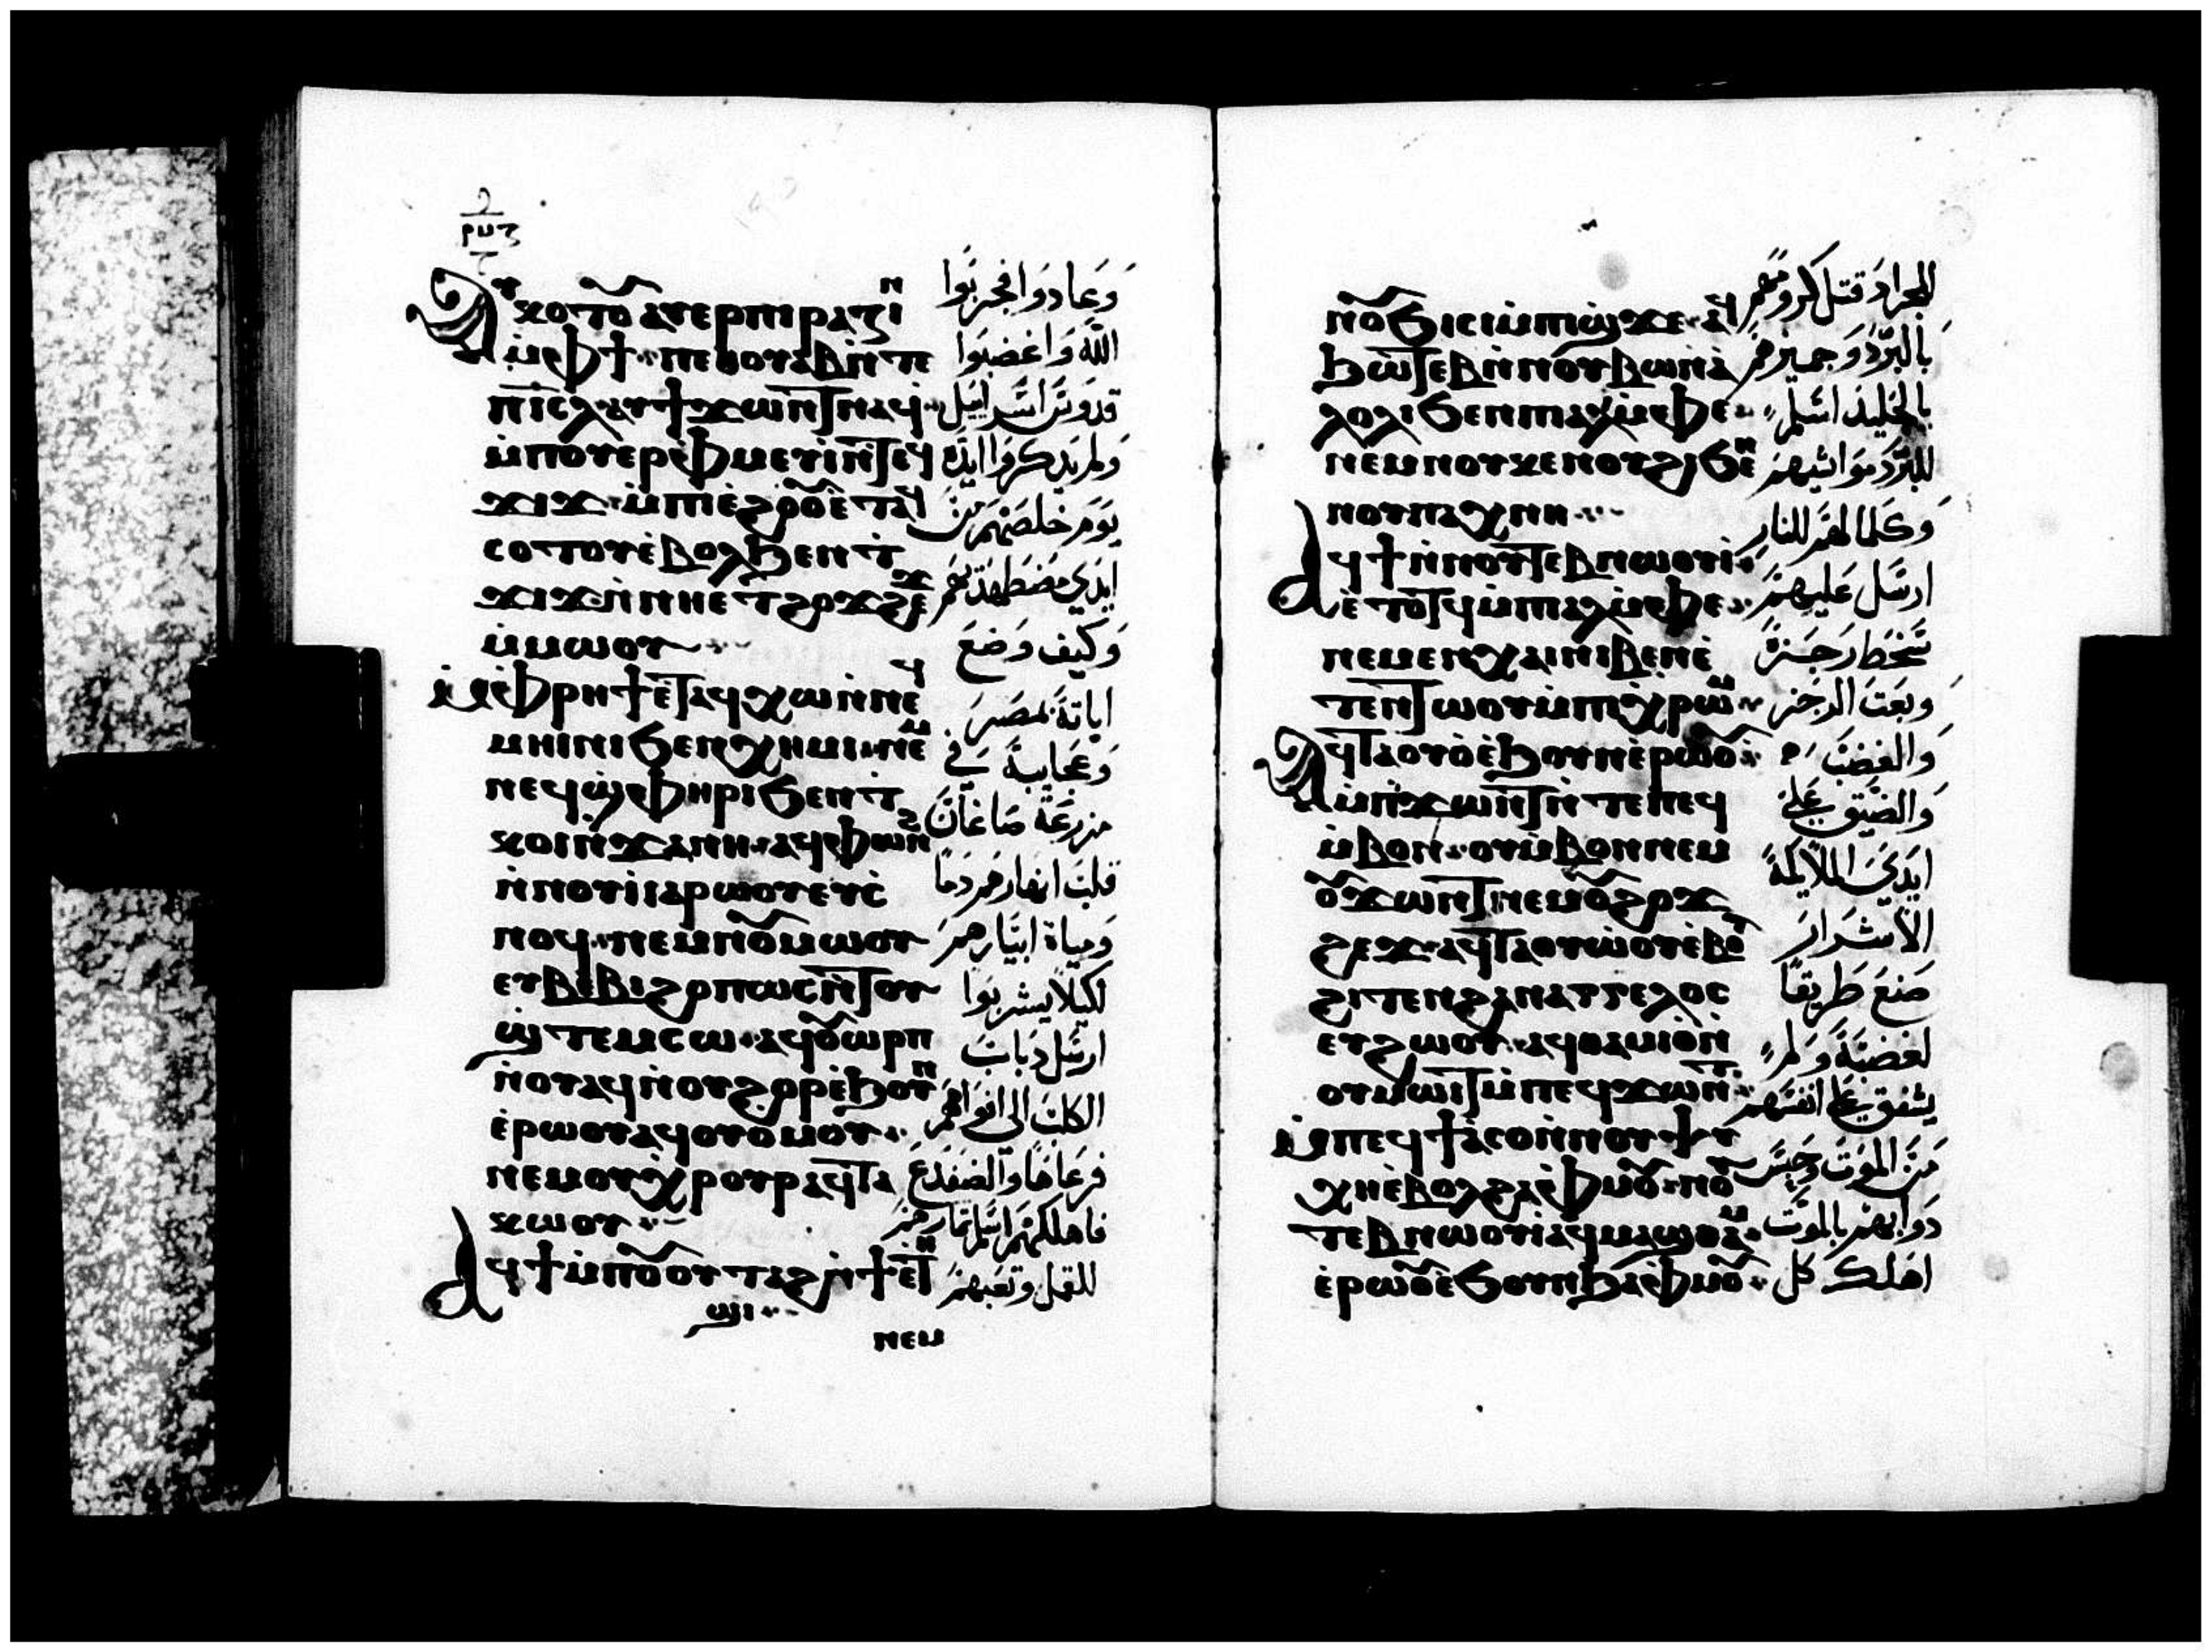 ⲁⲩⲕⲟⲧⲟⲩ ⲁⲩⲉⲣⲡⲓⲣⲁⲍⲓⲛ
ⲙⲫϯ ⲡⲉⲑⲟⲩⲁⲃ ⲛⲧⲉ
ⲡⲓⲥⲗ ⲁⲩϯϫⲱⲛⲧ ⲛⲁϥ
ⲙⲡⲟⲩⲉⲣⲫⲙⲉⲩⲓ ⲛⲧⲉϥ
ϫⲓϫ ⲙⲡⲓⲉϩⲟⲟⲩ ⲉⲧⲁϥ
ⲥⲟⲧⲟⲩ ⲉⲃⲟⲗ ϧⲉⲛ ⲧ
ϫⲓϫ ⲛⲛⲏⲉⲧϩⲟϫϩⲉϫ
ⲙⲙⲱⲟⲩ
ⲙⲫⲣⲏϯ ⲉⲧⲁϥⲭⲱ ⲛⲛⲉϥ
ⲙⲏⲓⲛⲓ ϧⲉⲛ ⲭⲏⲙⲓ ⲛⲉⲙ
ⲛⲉϥϣⲫⲏⲣⲓ ϧⲉⲛ ⲧ
ⲕⲟⲓ ⲛϫⲁⲛⲏ ⲁϥⲫⲱⲛϩ
ⲛⲛⲟⲩⲓⲁⲣⲱⲟⲩ ⲉⲩⲥ
ⲛⲟϥ ⲛⲉⲙ ⲛⲟⲩⲙⲱⲟⲩ
ⲉⲩⲃⲉⲃⲓ ϩⲟⲡⲱⲥ ⲛⲧⲟⲩ
ϣⲧⲉⲙⲥⲱ ⲁϥⲟⲩⲱⲣⲡ
ⲛⲟⲩⲁϥ ⲛⲟⲩϩⲟⲣ ⲉϧⲟⲩⲛ
ⲉⲣⲱⲟⲩ ⲁϥⲟⲩⲟⲙⲟⲩ
ⲛⲉⲙ ⲟⲩⲭⲣⲟⲩⲣ ⲁϥⲧⲁ
ⲕⲱⲟⲩ
ⲁϥϯ ⲙⲡⲟⲩⲟⲩⲧⲁϩ ⲛϯⲉⲧⲏ
ϣⲓ
ⲛⲉⲙ
وعادوا فجربوا
الله واغضبوا
قدوس اسرايل
ولم يذكروا ايده
يوم خلصهم من
ايدي مضطهديهم
وكيف وضع
اياته بمصر
وعجايبه في
مزرعة صاغان
قلب انهارهم دما
ومياه ابيارهم
لكيلا يشربوا
ارسل ذباب
الكلب الى افواههم
فرعاها والضفدع
فاهلكهم اسلم ثمارهم
للقمل وتعبهم
ⲛⲟⲩϧⲓⲥⲓ ⲙⲡⲓϣϫⲉ ⲁϥ
ϧⲱⲧⲉⲃ ⲛⲛⲟⲩⲃⲱⲛⲁ
ⲗⲟⲗⲓ ϧⲉⲛ ⲡⲁⲗⲙⲫⲉ
ⲛⲉⲙ ⲛⲟⲩⲕⲉⲛⲟⲩϩⲓ ϧⲉⲛ
ⲛⲟⲩⲡⲁⲭⲛⲏ
ⲁϥϯ ⲛⲛⲟⲩⲧⲉⲃⲛⲱⲟⲩⲓ
ⲉⲧⲟⲧϥ ⲙⲡⲁⲗⲙⲫⲉ
ⲛⲉⲙ ⲉⲛⲭⲁⲓ ⲛⲓⲃⲉⲛ ⲉ
ⲧⲉⲛⲧⲱⲟⲩ ⲙⲡⲓⲭⲣⲱⲙ
ⲁϥⲧⲁⲟⲩⲟ ⲉϧⲟⲩⲛ ⲉⲣⲱⲟⲩ
ⲙⲡϫⲱⲛⲧ ⲛⲧⲉ ⲡⲉϥ
ⲙⲃⲟⲛ ⲟⲩⲙⲃⲟⲛ ⲛⲉⲙ
ⲟⲩϫⲱⲛⲧ ⲛⲉⲙ ⲟⲩϩⲟϫ
ϩⲉϫ ⲁϥⲧⲁⲟⲩⲱⲟⲩ ⲉⲃⲟⲗ
ϩⲓⲧⲉⲛ ϩⲁⲛⲁⲅⲅⲉⲗⲟⲥ
ⲉⲩϩⲱⲟⲩ ⲁϥⲑⲁⲙⲓⲟ ⲛ
ⲟⲩⲙⲱⲓⲧ ⲙⲡⲉϥϫⲱⲛⲧ
ⲙⲡⲉϥϯⲁⲥⲟ ⲛⲛⲟⲩⲯⲩ
ⲭⲏ ⲉⲃⲟⲗϩⲁ ⲫⲙⲟⲩ ⲛⲟⲩ
ⲧⲉⲃⲛⲱⲟⲩⲓ ⲁϥⲙⲁϣⲑⲁⲙ
ⲉⲣⲱⲟⲩ ⲉϧⲟⲩⲛ ϧⲁ ⲫⲙⲟⲩ
للجراد قتل كرومهم
بالبرد وجميزهم
بالجليد اسلم
للبرد مواشيهم
وكلما لهم للنار
ارسل عليهم
سخط رجزه
وبعث الرجز
والغضب
والضيق على
ايدي الملايكة
الاشرار
صنع طريقا
لغضبه ولم
يشفق على انفسهم
من الموت وحبس
دوابهم بالموت
اهلك كل